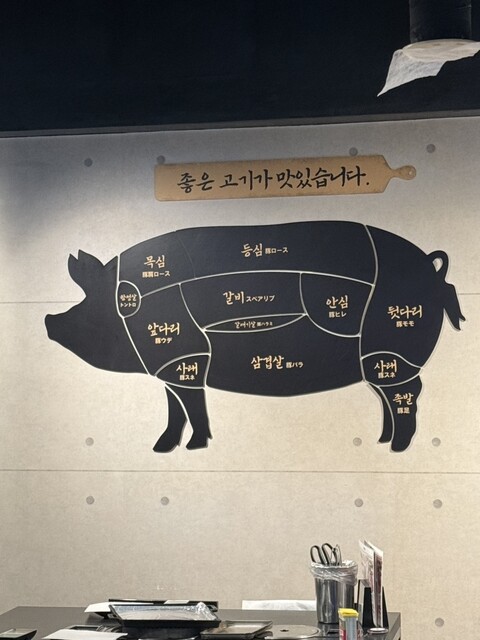 좋은 고기가 맛있습니다.
목심
豚肩ロース
등심 豚ロース
항정살
トントロ
갈비 スペアリブ
안심
豚ヒレ
뒷다리
豚モモ
앞다리
豚ウデ
갈매기살 豚ハラミ
삼겹살 豚バラ
사태
豚スネ
사태
豚スネ
족발
豚足